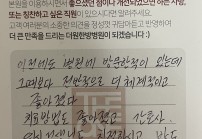 본원을 이용하시면서 좋으셨던 점이나 개선되었으면 하는 사항,
또는 칭찬하고 싶은 직원이 있으시다면 말씀해주세요.
고객 여러분의 소중한 의견을 정성껏 귀담아듣고 반영하여
더 큰 만족을 드리는 이한방병원이 되겠습니다.
이전에도 병원에 방문한적이 있는데
그때보다 전반적으로 더 체계적이고
좋아졌다
치료방법도 좋아졌고 간호사